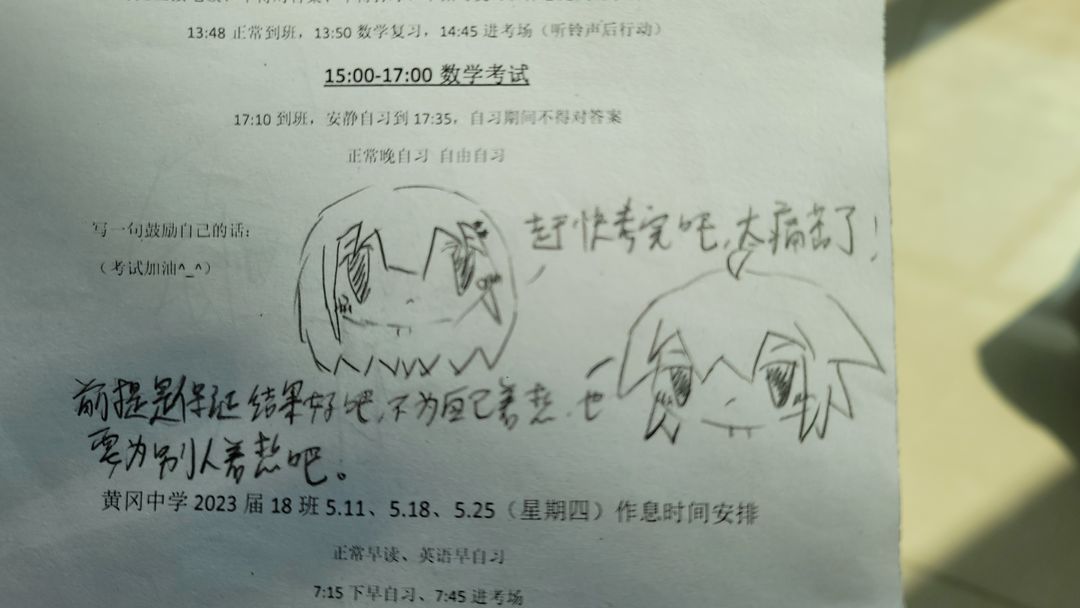 13:48 正常到班，13:50 数学复习，14:45 进考场（听铃声后行动）
15:00-17:00 数学考试
17:10 到班，安静自习到 17:35，自习期间不得对答案
正常晚自习 自由自习
写一句鼓励自己的话：
（考试加油^_^）
赶快考完吧，太痛苦了！
前提是保证结果好吧，不为自己着想，也
要为别人着想吧。
黄冈中学 2023 届 18 班 5.11、5.18、5.25（星期四）作息时间安排
正常早读、英语早自习
7:15 下早自习、7:45 进考场